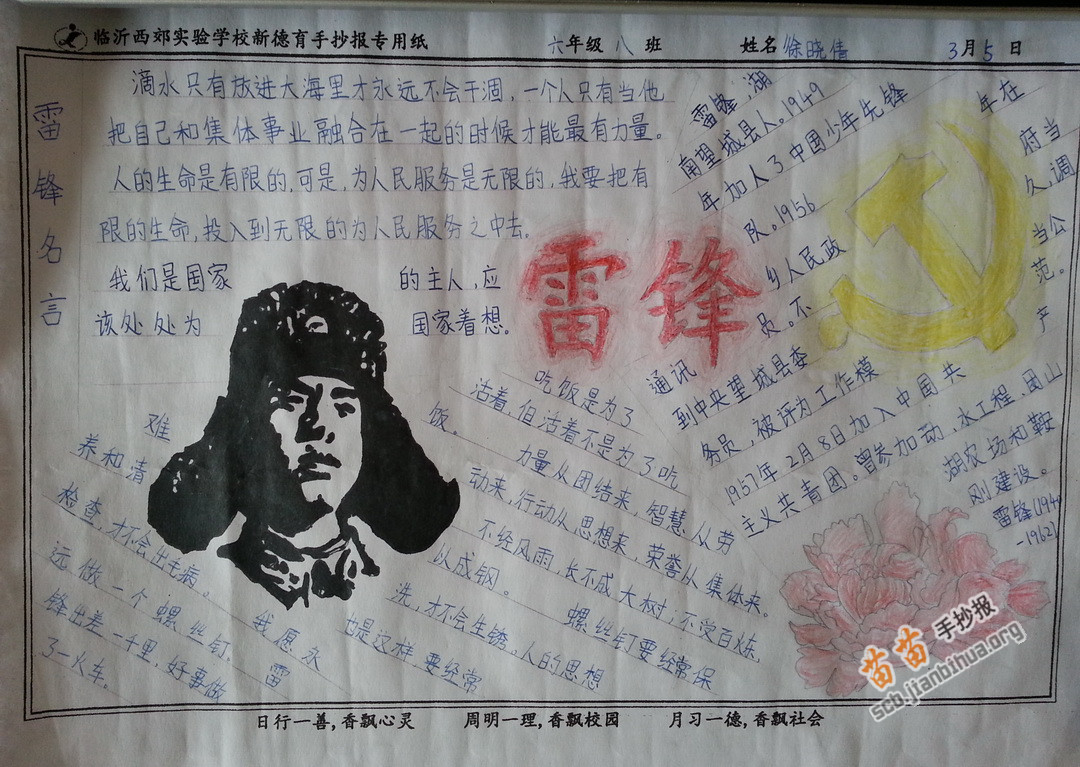 临沂西郊实验学校新德育手抄报专用纸 六年级 八 班 姓名 徐晓倩 3月5日
雷锋名言
滴水只有放进大海里才永远不会干涸，一个人只有当他
把自己和集体事业融合在一起的时候才能最有力量。
人的生命是有限的，可是，为人民服务是无限的，我要把有
限的生命，投入到无限的为人民服务之中去。
我们是国家 的主人，应
该处处为 国家着想。
雷锋
吃饭是为了
活着，但活着不是为了吃
饭。 力量从团结来，智慧从劳
动来，行动从思想来，荣誉从集体来。
不经风雨，长不成大树；不受百炼，
难 以成钢。 螺丝钉要经常保
养和清 洗，才不会生锈。人的思想
也是这样，要经常
检查，才不会出毛病。 我愿永
远做一个螺丝钉。 雷
锋出差一千里，好事做
了一火车。
雷锋，湖
南望城县人。1949
年加入了中国少年先锋
队。1956 年在
乡人民政 府当
通讯 员。不 久，调
到中央望城县委 当公
务员，被评为工作模 范。
1957年2月8日加入中国共 产
主义共青团。曾参加动，水工程、团山
湖农场和鞍
刚建设。
雷锋(1940
-1962)
日行一善，香飘心灵 周明一理，香飘校园 月习一德，香飘社会
苗苗手抄报
scb.jianbihua.org